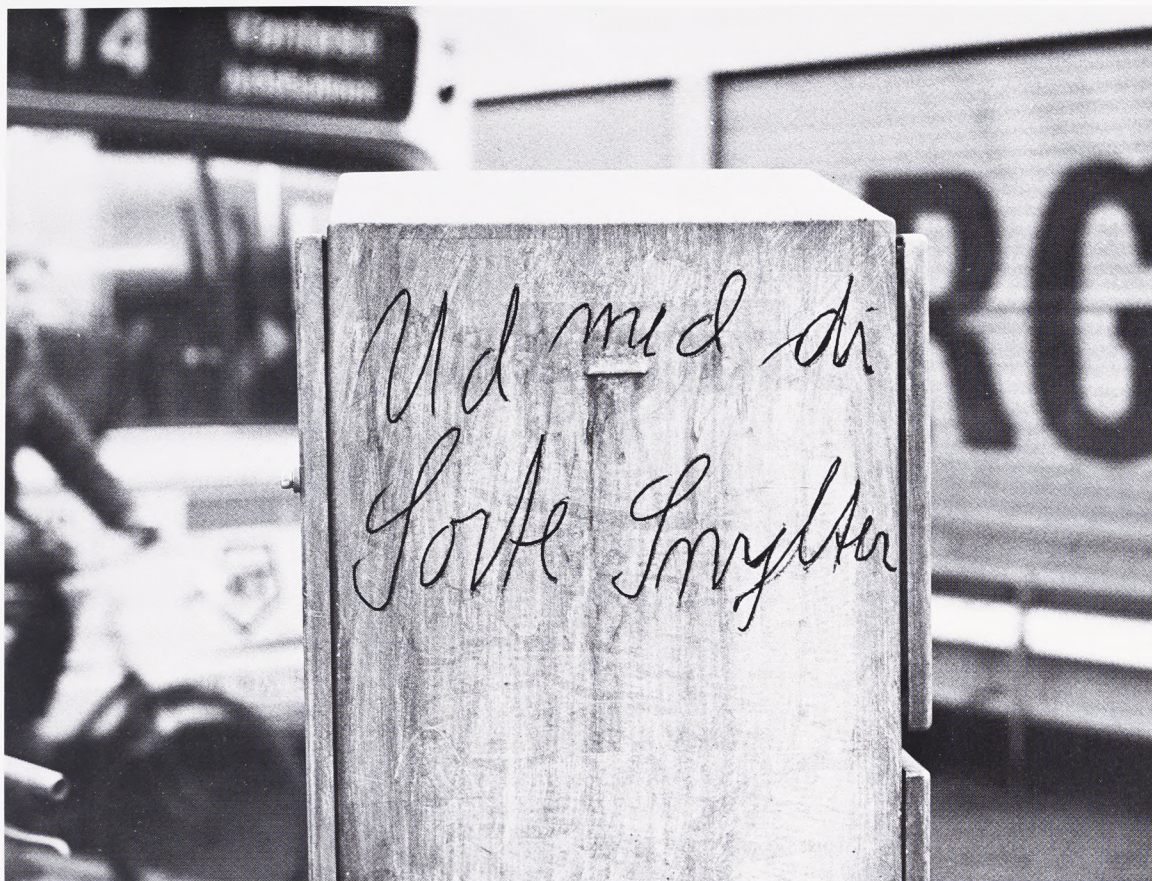 14
Ud med di
Sorte Snylter
RG